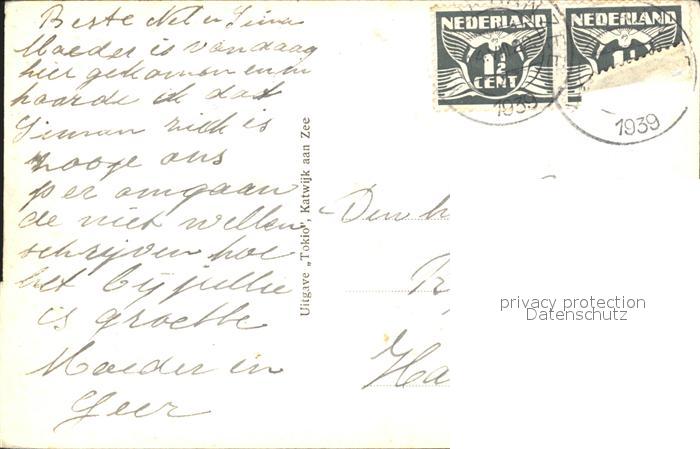 Beste Nel en Siman
Moeder is vandaag
hier gekomen en nu
hoorde ik dat
Siman ziek is
zooje ons
per omgaan
de niet willen
schrijven hoe
het bij jullie
is groetbe
Moeder en
Geer
Uitgave „Tokio", Katwijk aan Zee
NEDERLAND
1½
CENT
NEDERLAND
1939
1939
Den h
Ha
privacy protection
Datenschutz